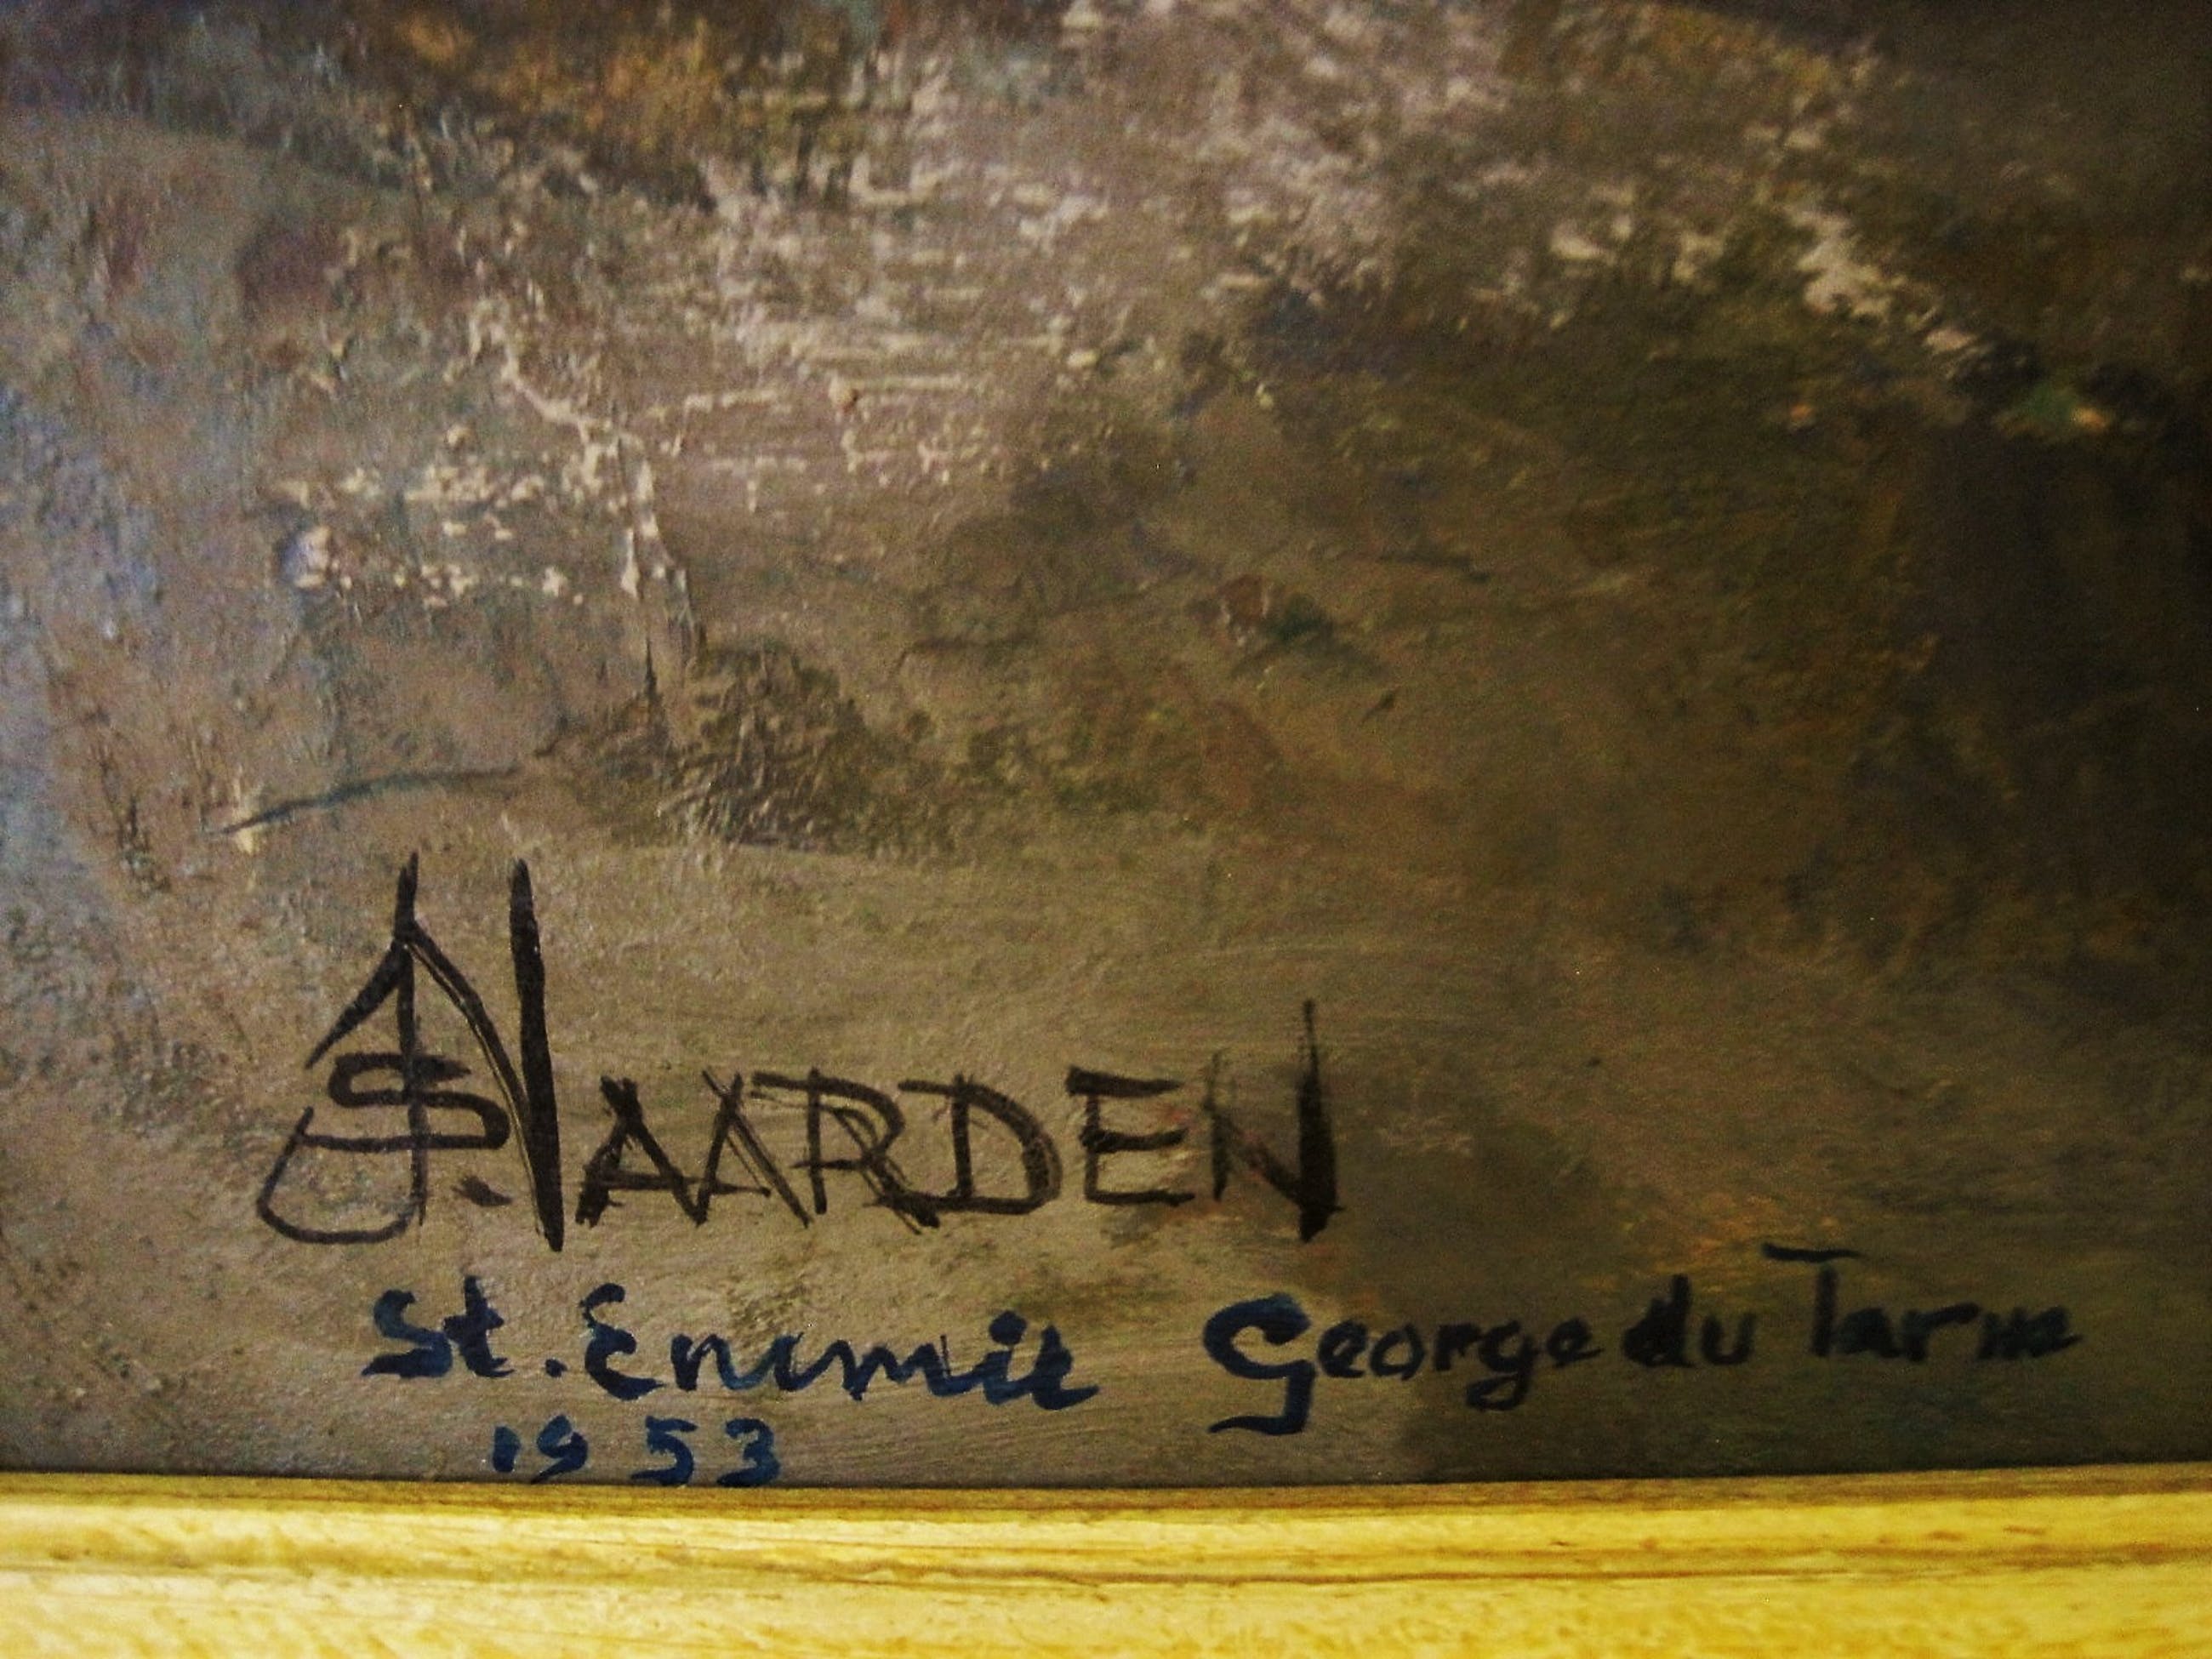 JS. NAARDEN
St. Enimie George du Tarm
1953